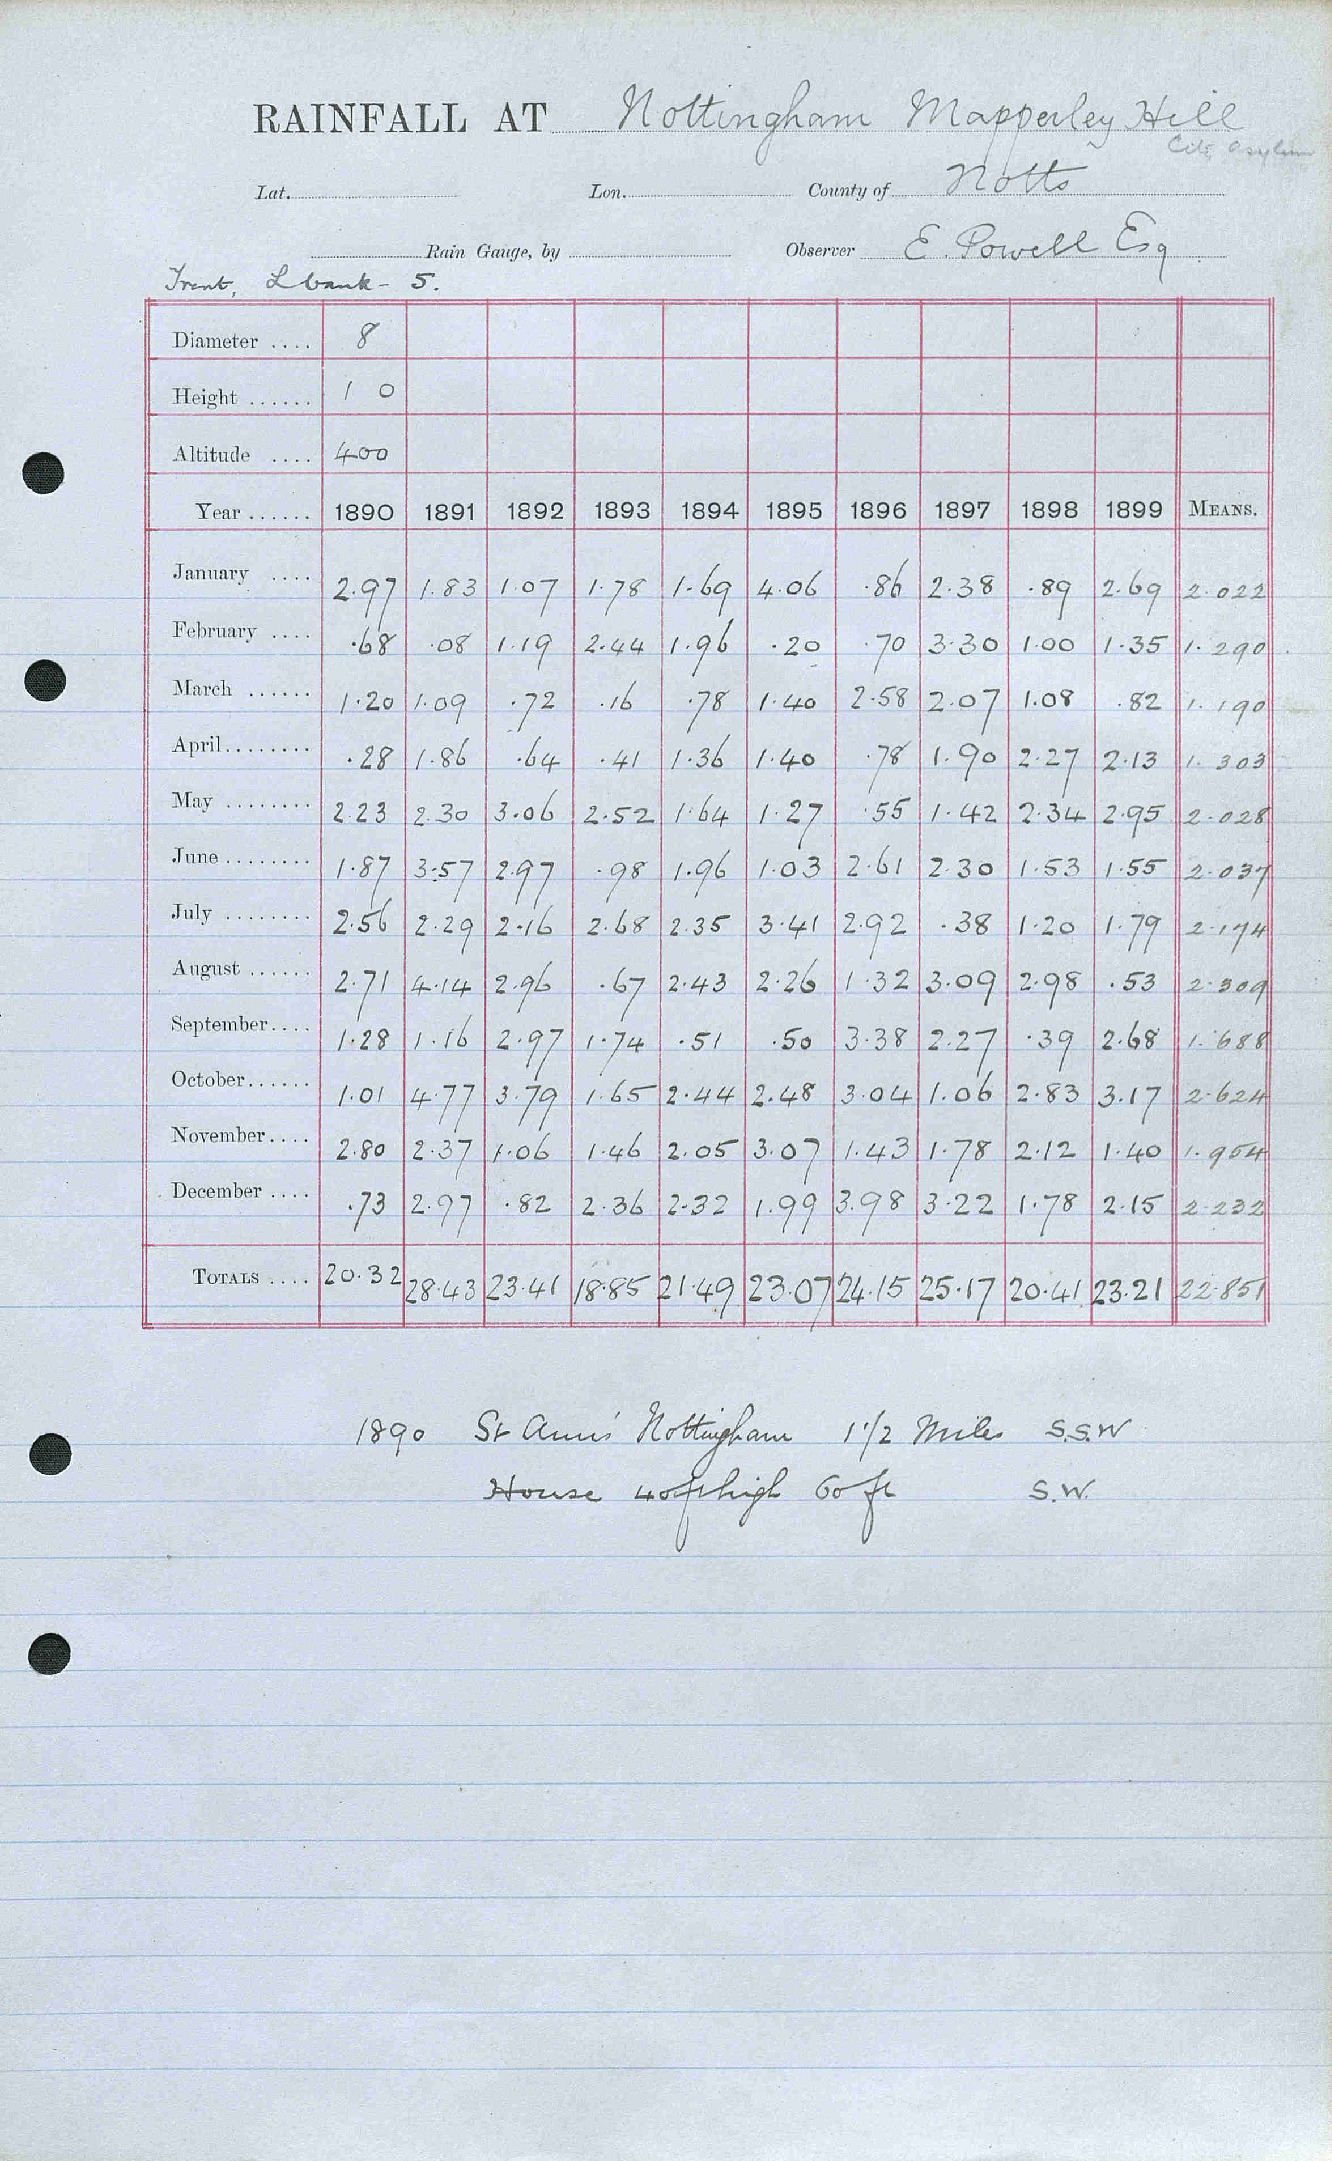 RAINFALL AT Nottingham Mapperley Hill
City Asylum
Lat. Lon. County of Notts
Rain Gauge, by Observer E. Powell Esq
Trent, L bank - 5.
Diameter .... 8
Height ...... 1 0
Altitude .... 400
Year ...... 1890 1891 1892 1893 1894 1895 1896 1897 1898 1899 MEANS.
January .... 2.97 1.83 1.07 1.78 1.69 4.06 .86 2.38 .89 2.69 2.022
February .... .68 .08 1.19 2.44 1.96 .20 .70 3.30 1.00 1.35 1.290
March ...... 1.20 1.09 .72 .16 .78 1.40 2.58 2.07 1.08 .82 1.190
April........ .28 1.86 .64 .41 1.36 1.40 .78 1.90 2.27 2.13 1.303
May ........ 2.23 2.30 3.06 2.52 1.64 1.27 .55 1.42 2.34 2.95 2.028
June ........ 1.87 3.57 2.97 .98 1.96 1.03 2.61 2.30 1.53 1.55 2.037
July ........ 2.56 2.29 2.16 2.68 2.35 3.41 2.92 .38 1.20 1.79 2.174
August ...... 2.71 4.14 2.96 .67 2.43 2.26 1.32 3.09 2.98 .53 2.309
September.... 1.28 1.16 2.97 1.74 .51 .50 3.38 2.27 .39 2.68 1.688
October...... 1.01 4.77 3.79 1.65 2.44 2.48 3.04 1.06 2.83 3.17 2.624
November.... 2.80 2.37 1.06 1.46 2.05 3.07 1.43 1.78 2.12 1.40 1.954
December .... .73 2.97 .82 2.36 2.32 1.99 3.98 3.22 1.78 2.15 2.232
TOTALS .... 20.32 28.43 23.41 18.85 21.49 23.07 24.15 25.17 20.41 23.21 22.851
1890 St Ann's Nottingham 1 1/2 Miles S.S.W
House 40ft high 60 ft S.W.